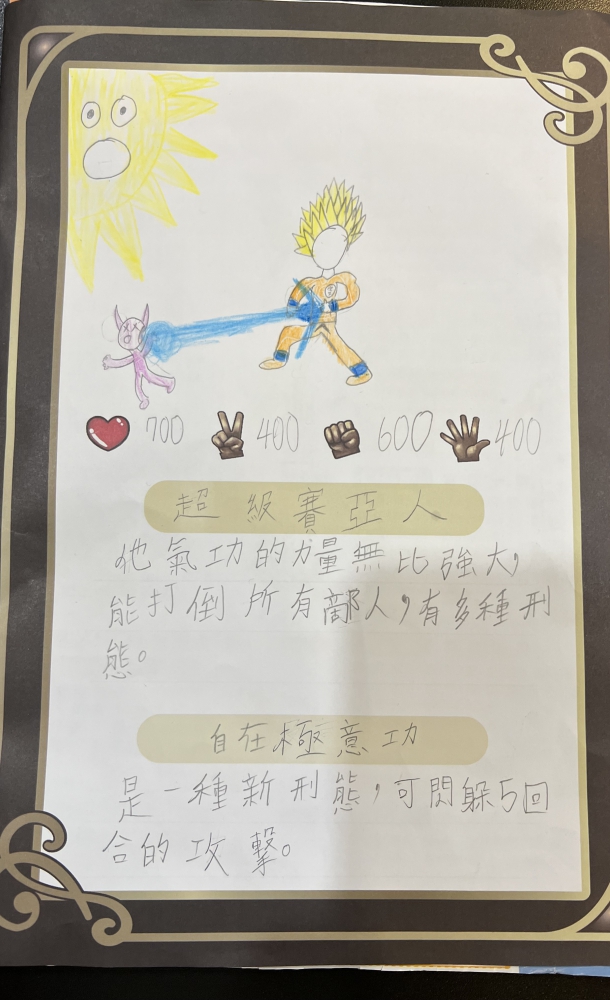 700 400 600 400
超級賽亞人
他氣功的力量無比強大,
能打倒所有鄗人,有多種刑
態。
自在極意功
是一種新刑態,可閃躲5回
合的攻擊。